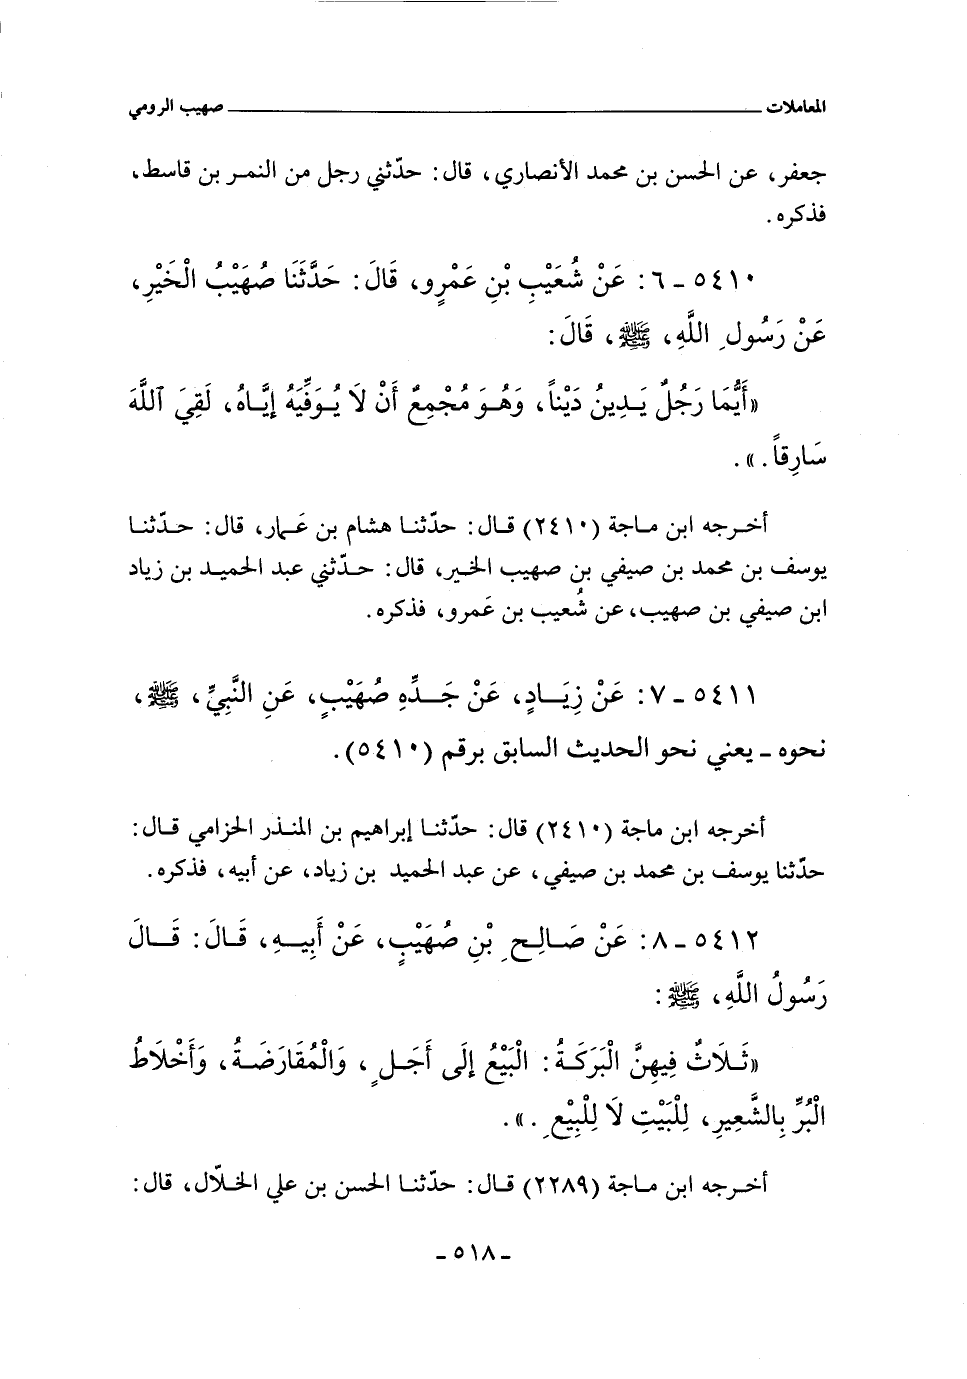 المعاملات ــــــــــــــــــــــــــــــــــــــــ صهيب الرومي
جعفر، عن الحسن بن محمد الأنصاري، قال: حدّثني رجل من النمر بن قاسط،
فذكره.
٥٤١٠ - ٦: عَنْ شُعَيْبِ بْنِ عَمْرٍو، قَالَ: حَدَّثَنَا صُهَيْبُ الْخَيْرِ،
عَنْ رَسُولِ اللَّهِ، ﷺ، قَالَ:
«أَيُّمَا رَجُلٌ يَدِينُ دَيْناً، وَهُوَ مُجْمِعٌ أَنْ لَا يُوَفِّيَهُ إِيَّاهُ، لَقِيَ ٱللَّهَ
سَارِقاً.».
أخرجه ابن ماجة (٢٤١٠) قال: حدّثنا هشام بن عَمار، قال: حدّثنا
يوسف بن محمد بن صيفي بن صهيب الخير، قال: حدّثني عبد الحميد بن زياد
ابن صيفي بن صهيب، عن شُعيب بن عَمرو، فذكره.
٥٤١١ - ٧: عَنْ زِيَادٍ، عَنْ جَدِّهِ صُهَيْبٍ، عَنِ النَّبِيِّ، ﷺ،
نحوه - يعني نحو الحديث السابق برقم (٥٤١٠).
أخرجه ابن ماجة (٢٤١٠) قال: حدّثنا إبراهيم بن المنذر الحزامي قال:
حدّثنا يوسف بن محمد بن صيفي، عن عبد الحميد بن زياد، عن أبيه، فذكره.
٥٤١٢ - ٨: عَنْ صَالِحِ بْنِ صُهَيْبٍ، عَنْ أَبِيهِ، قَالَ: قَالَ
رَسُولُ اللَّهِ، ﷺ:
«ثَلَاثٌ فِيهِنَّ الْبَرَكَةُ: الْبَيْعُ إِلَى أَجَلٍ، وَالْمُقَارَضَةُ، وَأَخْلَاطُ
الْبُرِّ بِالشَّعِيرِ، لِلْبَيْتِ لَا لِلْبِيْعِ.».
أخرجه ابن ماجة (٢٢٨٩) قال: حدّثنا الحسن بن علي الخلّال، قال:
- ٥١٨ -